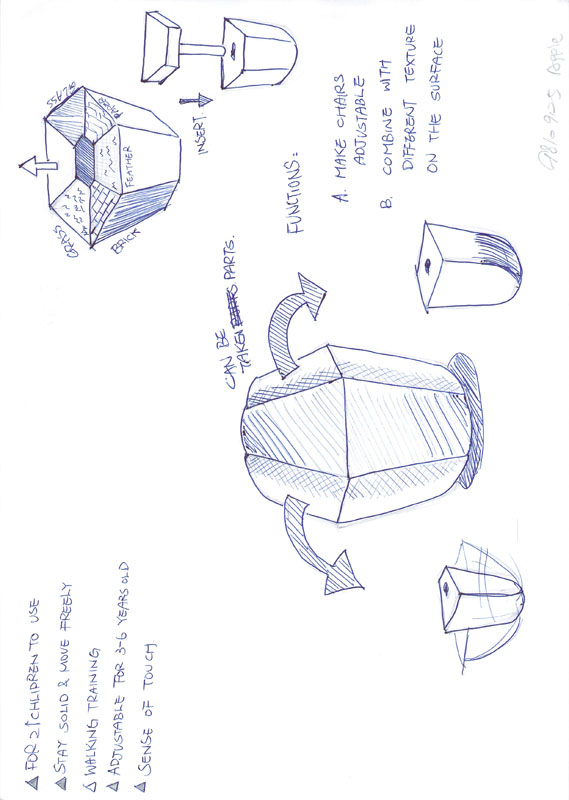 ▲ FOR 2↑ CHLIPREN TO USE
▲ STAY SOLID & MOVE FREELY
△ WALKING TRAINING
▲ ADJUSTABLE FOR 3-6 YEARS OLD
▲ SENSE OF TOUCH.
CAN BE
TAKEN PARTS.
FUNCTIONS:
A. MAKE CHAIRS
ADJUSTABLE
B. COMBINE WITH
DIFFERENT TEXTURE
ON THE SURFACE
GRASS
BRICK
FEATHER
GLASS
INSERT.
Apple